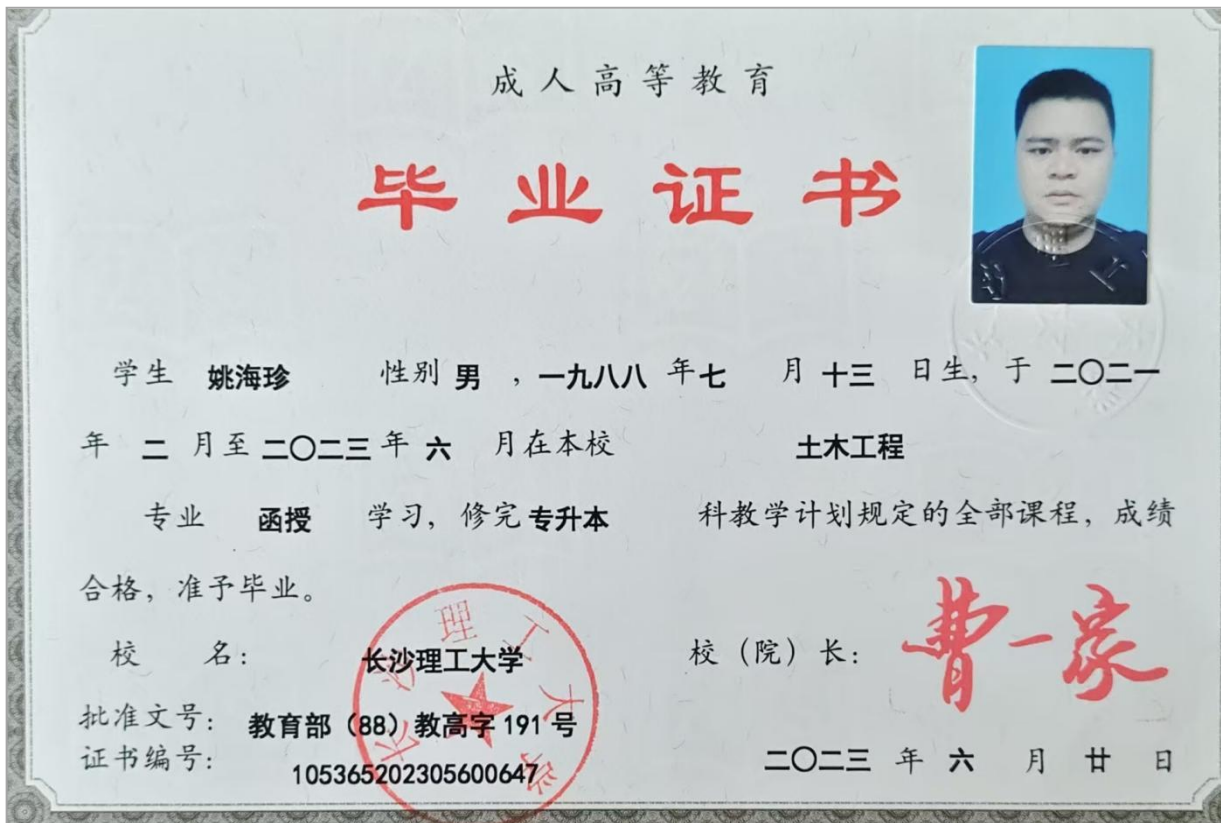 成人高等教育
毕业证书
学生 姚海珍 性别 男 ，一九八八 年 七 月 十三 日生，于 二〇二一
年 二 月至 二〇二三 年 六 月在本校 土木工程
专业 函授 学习，修完 专升本 科教学计划规定的全部课程，成绩
合格，准予毕业。
校 名： 长沙理工大学 校（院）长： 曹一家
批准文号： 教育部（88）教高字 191 号
证书编号： 105365202305600647
二〇二三 年 六 月 廿 日
长沙理工大学